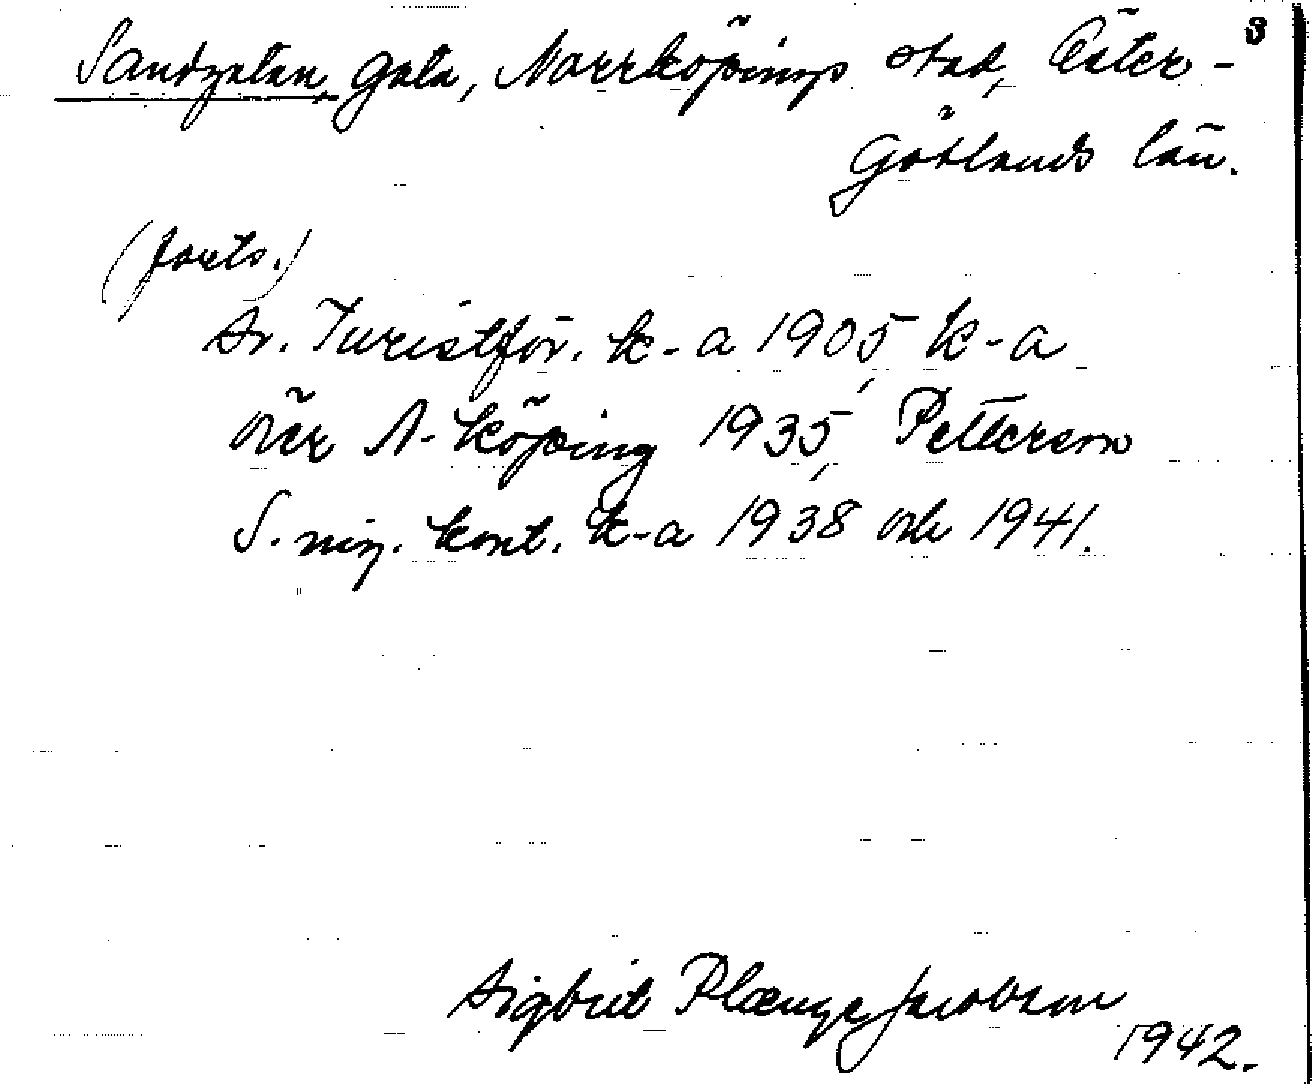 3
Sandgatan, gata, Norrköpings stad, Öster-
götlands län.
(forts.)
Sv. Turistför. k-a 1905, k-a
över N-köping 1935, Petterson
S. ning. kont. k-a 1938 och 1941.
Sigbrit Plænge Jacobson
1942.